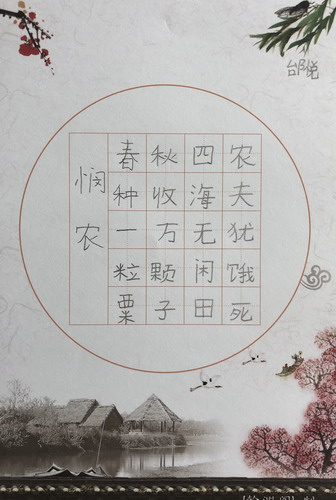 邰悦
悯农
春种一粒粟
秋收万颗子
四海无闲田
农夫犹饿死